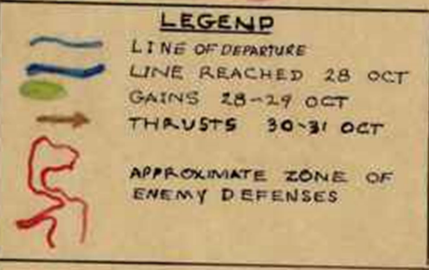 LEGEND
LINE OF DEPARTURE
LINE REACHED 28 OCT
GAINS 28-29 OCT
THRUSTS 30-31 OCT
APPROXIMATE ZONE OF
ENEMY DEFENSES